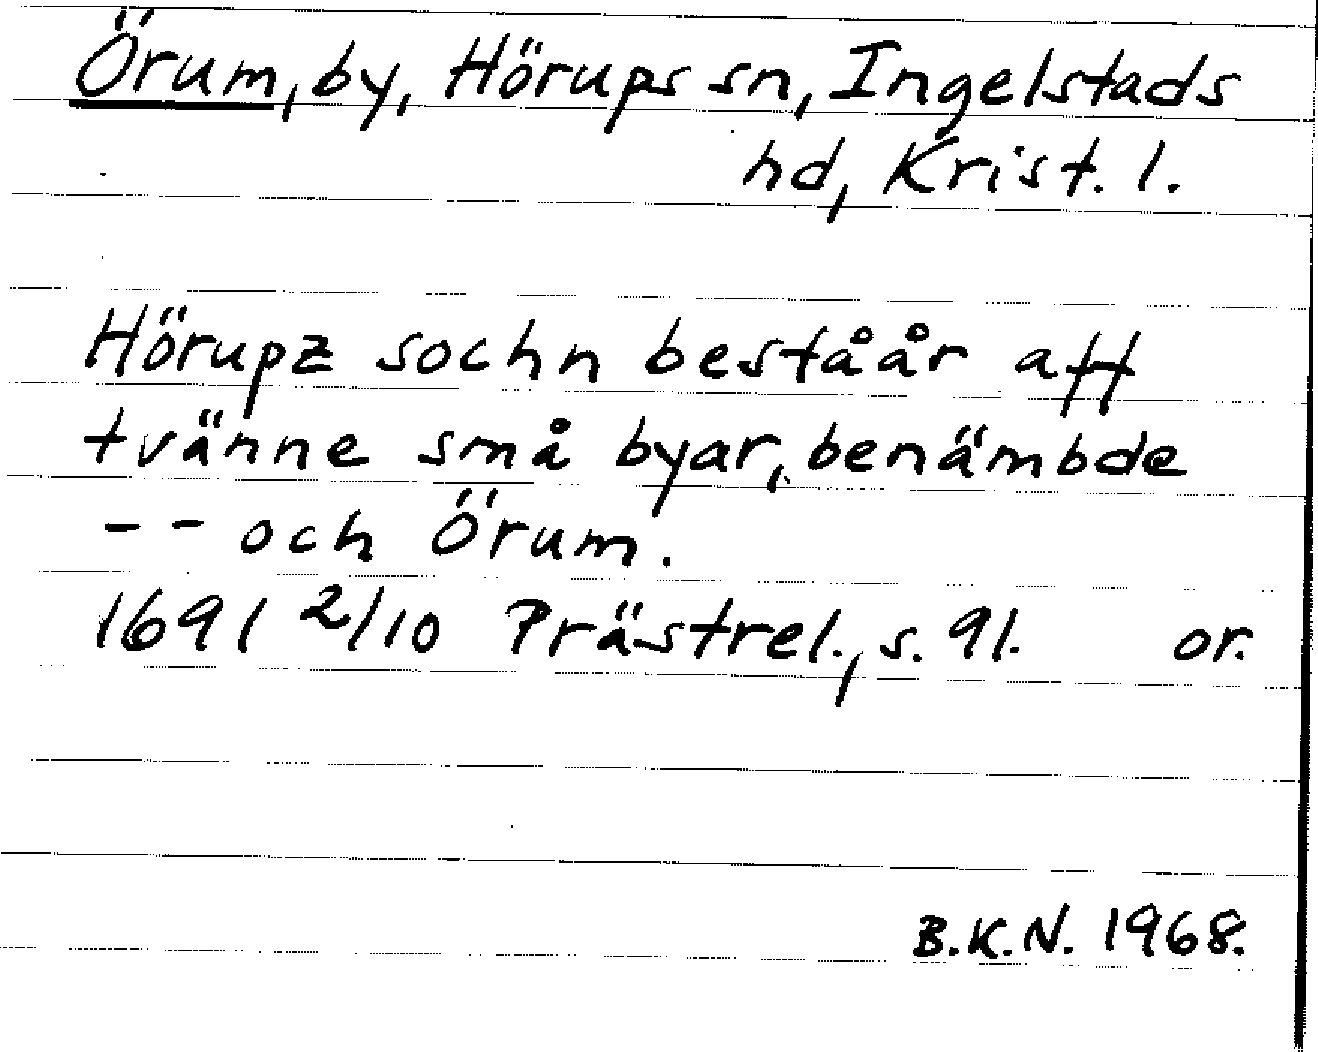 Örum, by, Hörups sn, Ingelstads
hd, Krist. l.
Hörupz sochn beståår aff
tvänne små byar, benämbde
-- och Örum.
1691 2/10 Prästrel., s. 91. or.
B.K.N. 1968.